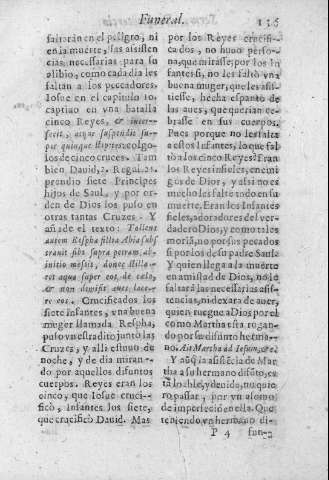 Funeral. 136
faltaràn en el peligro, ni
en la muerte, las asisten
cias necessarias para su
alibio, como cada dia les
faltan a los pecadores.
Iosue en el capitulo 10.
captiuo en vna batalla
cinco Reyes, & inter-
fecit, atque suspendit su-
per quinque stipites: colgo-
los de cinco cruces. Tam
bien Dauid, 2. Regul. 21.
prendio siete Principes
hijos de Saul, y por or-
den de Dios los puso en
otras tantas Cruzes. Y
añade el texto: Tollens
autem Respha filia Abia subs
trauit sibi supra petram, ab
initio messis, donec stilla-
ret aqua super eos, de cælo,
& non dimisit aues lace-
re eos. Crucificados los
siete Infantes, vna buena
muger llamada Respha,
puso vn estrado junto las
Cruzes, y alli estuuo de
noche, y de dia miran-
do por aquellos difuntos
cuerpos. Reyes eran los
cinco, que Iosue cruci-
fico, Infantes los siete,
que crucificò Dauid. Mas
por los Reyes crucifi-
cados, no huuo perso-
na, que mirasse: por los In
fantes si, no les falta vna
buena muger, que les asis-
tiesse, hecha espanto de
las aues, que querian ce-
brarse en sus cuerpos.
Pues porque no les falta
a estos Infantes, lo que fal
tò a los cinco Reyes? Eran
los Reyes infieles, enemi
gos de Dior, y asi no es
mucho les falte todo en su
muerte. Eran los Infantes
fieles, adoradores del ver-
dadero Dios, y como tales
moriã, no por sus pecados
si por los de su padre Saul
Y quien llega a la muerte
en amistad de Dios, no le
faltarà las necessarias asis-
tencias, ni dexara de auer,
quien ruegue a Dios por el
como Martha esta rogan-
do por su difunto herma-
no. Ait Martha ad Iesum, &c.
Y aũq̃ la asistẽcia de Mar
tha a su hermano difũto, es
tà loable, y de uido, no quie
ro passar, por vn asomo
de imperfeciõ en ella. Que
teniendo vn hermano di-
P 4 fun-